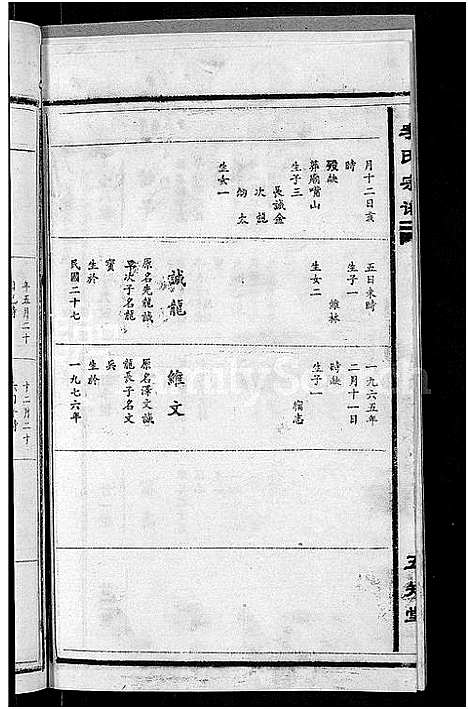 李氏宗譜
五知堂
月十二日亥
時
歿缺
葬廟嘴山
生子三
長誠金
次龍
幼太
生女一
五日未時
生子一
維林
生女二
誠龍
原名先龍誠
次子名龍
寶
生於
民國二十七
一九六五年
二月十一日
時缺
生子一
維文
原名澤文誠
龍長子名文
兵
生於
一九七六年
年五月二十
十二月二十